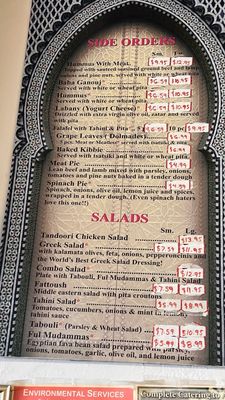 SIDE ORDERS
Sm. Lg.
Hummus With Meat $9.95 $12.95
Topped with sauteed seasoned ground beef and lamb
onions and pine nuts. Served with white or wheat
Baba Ganouj* $6.59 $10.95
Served with white or wheat
Hummus* $6.59 $10.95
Served with white or wheat
Labany (Yogurt Cheese)* $6.59 $10.95
Drizzled with extra virgin olive oil, zatar and served
with white or wheat pita
Falafel with Tahini & Pita* 5 $6.59 10 $9.99
Grape Leaves (Dolmades) $6.99
5 pcs. Meat or Meatless* served with tsatsiki &
Baked Kibbie $6.99
Served with tsatsiki and white or wheat pita
Meat Pie $4.99
Lean beef and lamb mixed with parsley, onions,
tomatoes and pine nuts baked in a tender dough
Spinach Pie* $4.99
Spinach, onions, olive oil, lemon juice and spices
wrapped in a tender dough. (Even spinach haters
love this one!!)
SALADS
Sm. Lg.
Tandoori Chicken Salad $13.95
Greek Salad* $7.59 $11.95
with kalamata olives, feta, onions, pepperoncinis and
the World's Best Greek Salad Dressing!
Combo Salad* $12.95
Plate with Tabouli, Ful Mudammas & Tahini Salad
Fattoush $7.59
Middle eastern salad with pita croutons
Tahini Salad* $5.99 $8.99
Tomatoes, cucumbers, onions & mint in
tahini sauce
Tabouli* (Parsley & Wheat Salad) $7.59 $10.95
Ful Mudammas* $5.99 $8.99
Egyptian fava bean salad prepared with parsley,
onions, tomatoes, garlic, olive oil, and lemon juice
ENVIRONMENTAL SERVICES
Complete Catering to